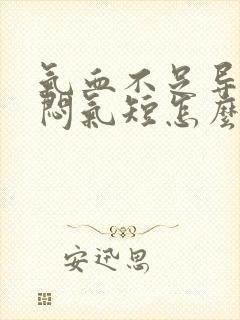 氣血不足导
悶氣短怎麼
安迅思